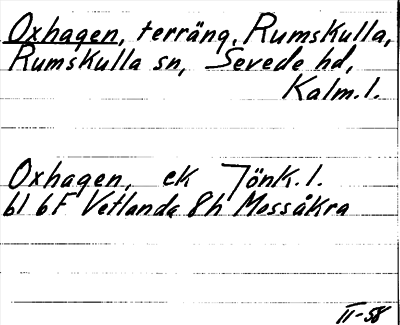 Oxhagen, terräng, Rumskulla,
Rumskulla sn, Sevede hd,
Kalm.l.
Oxhagen, ek Jönk.l.
bl 6F Vetlanda 8h Mossåkra
II-58